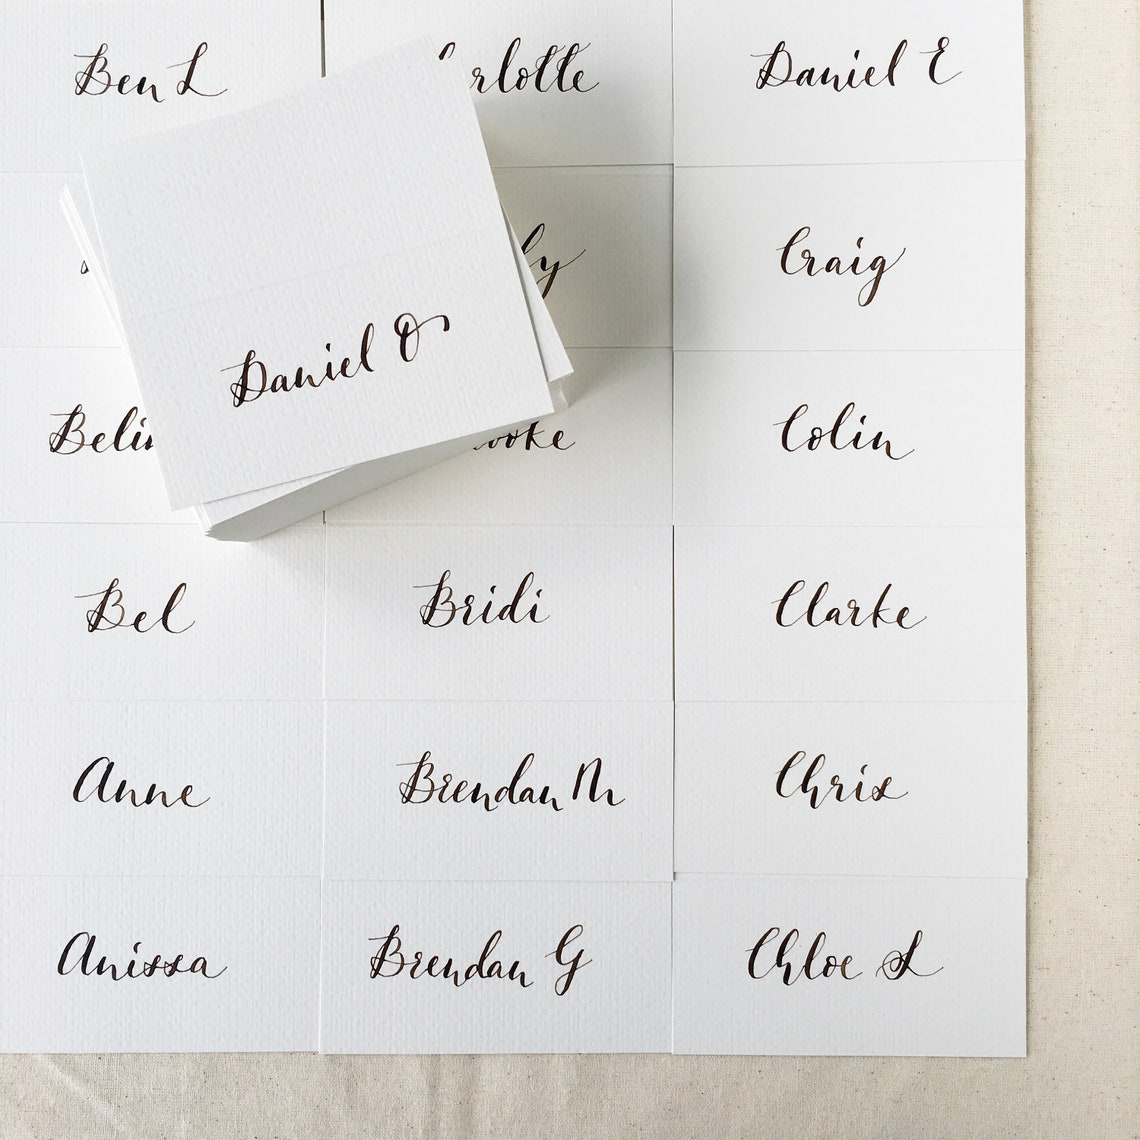 Ben L
Daniel E
Craig
Daniel O
Colin
Bel
Bridi
Clarke
Anne
Brendan M
Chris
Anissa
Brendan G
Chloe L